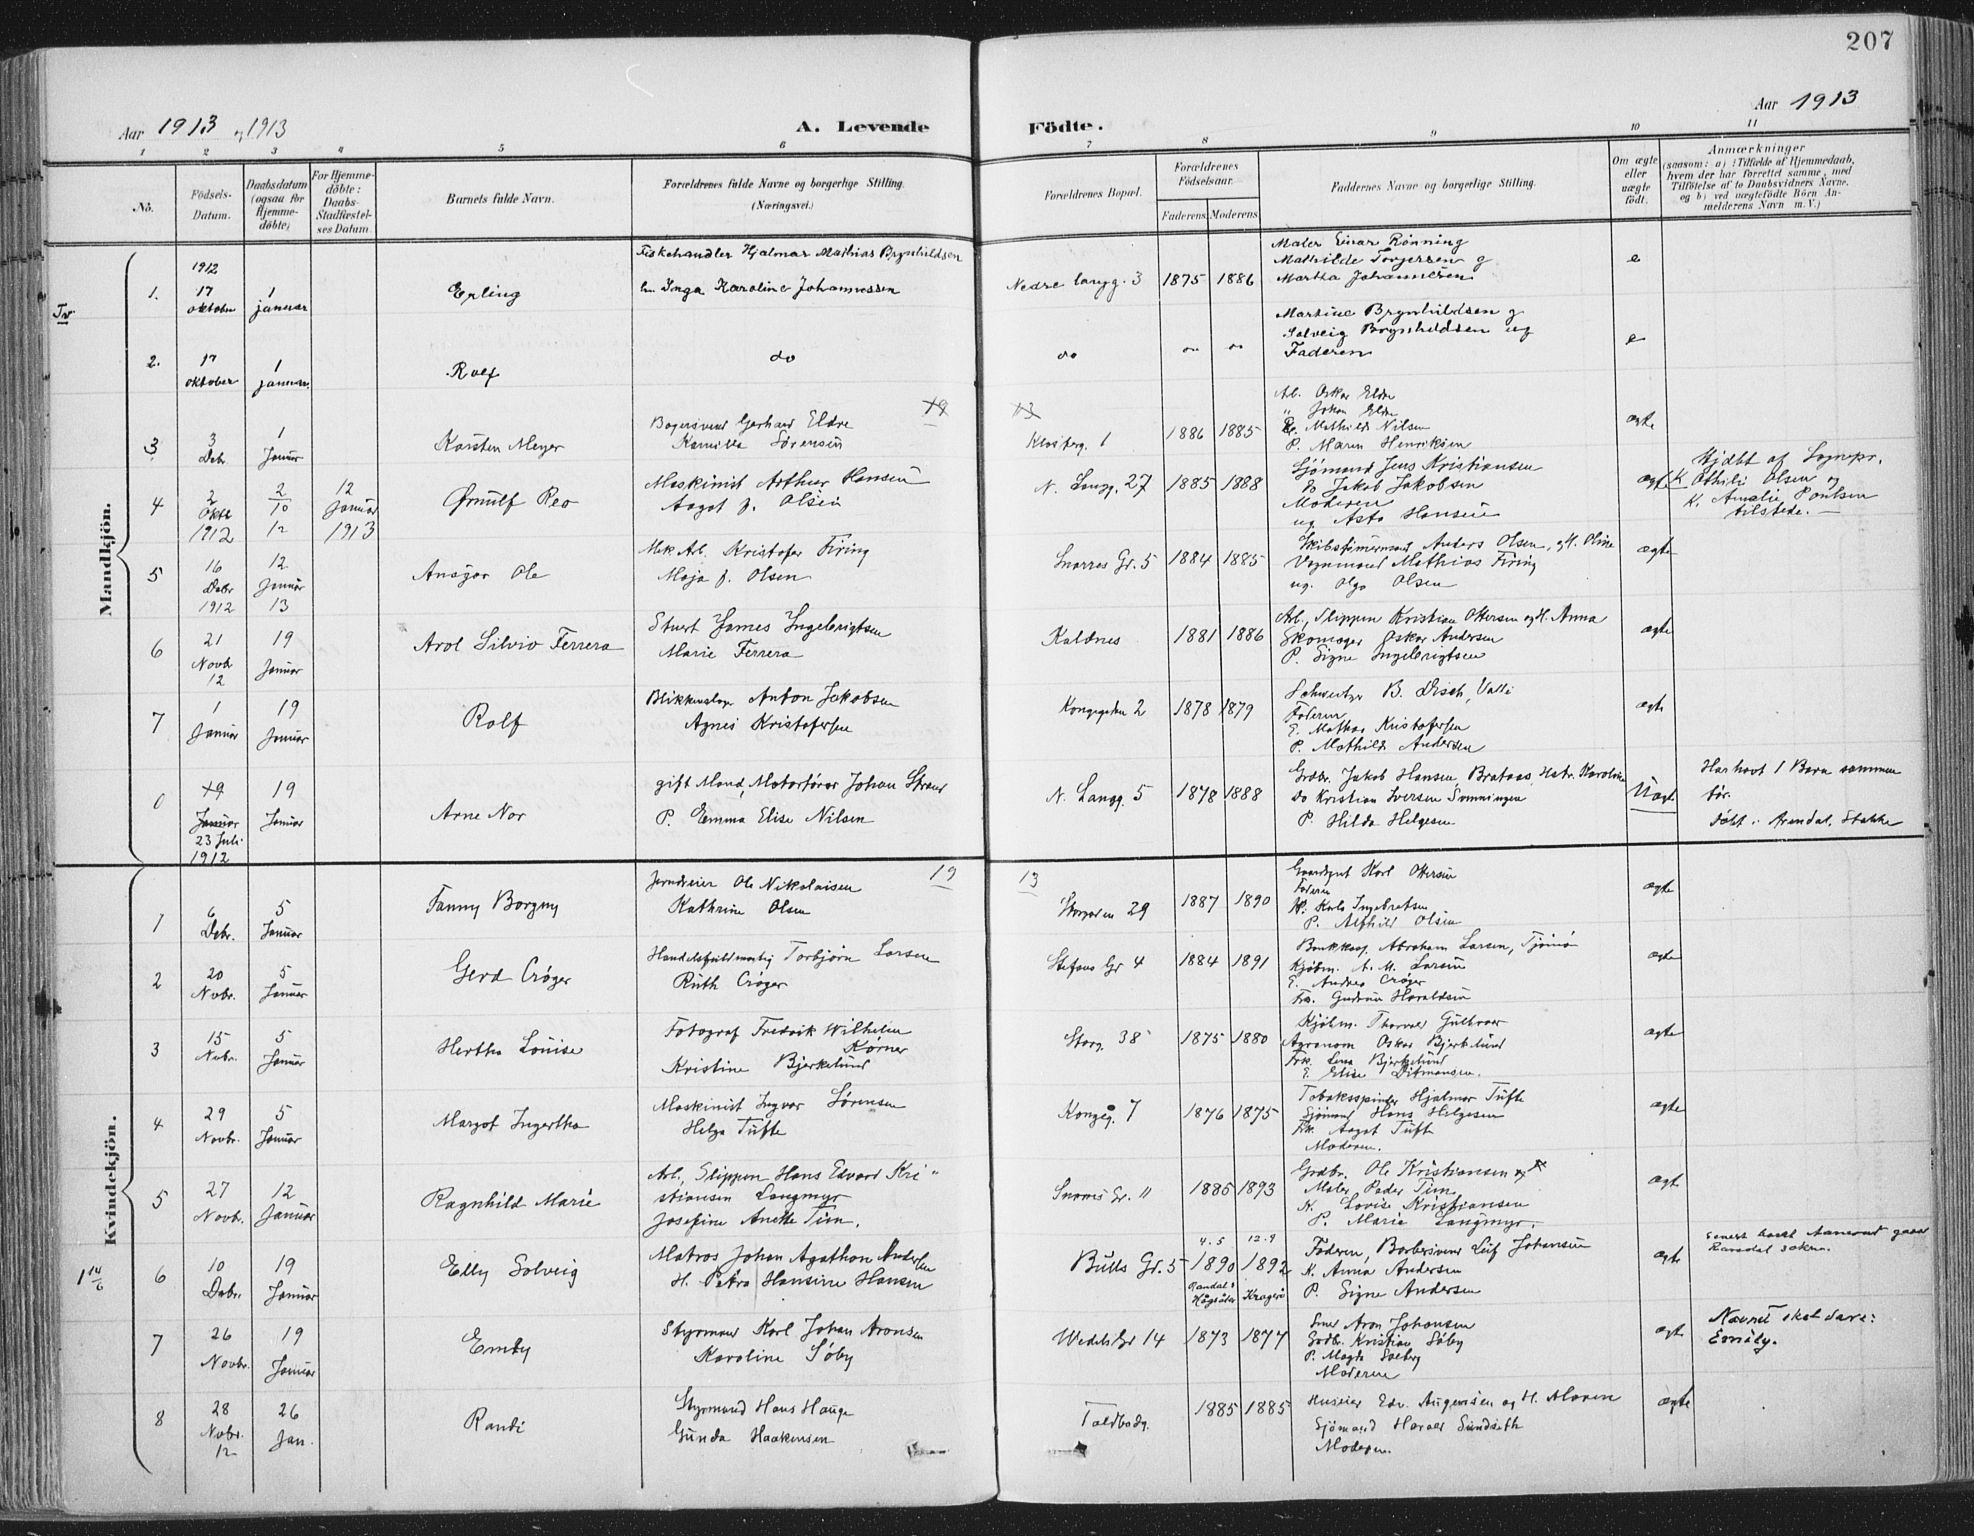 207
Aar 1913 og 1913
A. Levende Födte.
Aar 1913
1 2 3 4 5 6 7 8 9 10 11
No.
Födsels-Datum.
Daabsdatum (ogsaa for Hjemme-döbte)
For Hjemme-döbte: Daabs-Stadfæstel-ses Datum.
Barnets fulde Navn.
Forældrenes fulde Navne og borgerlige Stilling.
(Næringsvei.)
Forældrenes Bopæl.
Forældrenes Födselsaar.
Faderens Moderens
Faddernes Navne og borgerlige Stilling.
Om ægte eller uægte födt.
Anmærkninger
(saasom: a) i Tilfælde af Hjemmedaab,
hvem der har forrettet samme, med
Tilföielse af to Daabsvidners Navne,
og b) ved uægtefödte Börn An-
melderens Navn m. V.)
Mandkjön.
Tv.
1. 1912 17 oktober
1 januar
Erling
Fiskehandler Hjalmar Mathias Brynhildsen
h. Inga Karoline Johannessen
Nedre langg. 3
1875 1886
Maler Einar Rönning
Mathilde Torjersen g
Martha Johannesen
e
2. 17 oktober
1 januar
Rolf
do
do
Martine Brynhildsen g
Solveig Brynhildsen ug
Faderen
e
3 3 Debr.
1 Januar
Karsten Meyer
Bagersvend Gerhard Eldre
Kamilla Sörensen
19
13
Klosterg. 1
1886 1885
Ab. Oskar Eldre
" Johan Eldre
Mathilde Nilsen
P. Maren Henriksen
ægte
4 2 Okt. 1912
2/10 12
12 Januar 1913
Ørnulf Reo
Maskinist Arthur Hansen
Aagot f. Olsen
N. Langg. 27
1885 1888
Sjömand Jens Kristiansen
Do Jakob Jakobsen
Moderen
ug Asta Hansen
ægte
Hjdbt af Sognepr.
K. Othilie Olsen og
K. Amalie Poulsen
tilstede.
5 16 Debr 1912
12 Januar 13
Ansgar Ole
Mek Arb. Kristofer Firing
Maja f. Olsen
Snorres Gr. 5
1884 1885
Skibstömermand Anders Olsen, og H. Oline
Vognmand Mathias Firing
ug. Olga Olsen
ægte
6 21 Novb 12
19 Januar
Arol Silvio Ferrera
Stuert James Ingebrigtsen
Marie Ferrera
Kaldnes
1881 1886
Arb. Slippen Kristian Ottersen og H. Anna
Skomager Oskar Andersen
P. Signe Ingebrigtsen
ægte
7 1 Januar
19 Januar
Rolf
Blikkenslager Anton Jakobsen
Agnes Kristofersen
Kongegaten 2
1878 1879
Schweitzer B. Disch, Valle
Faderen
E. Mathea Kristofersen
P. Mathilde Andersen
ægte
19 Januar 23 Juli 1912
19 Januar
Arne Nor
gift Mand, Motorförer Johan Strand
P. Emma Elise Nilsen
N. Langg. 5
1878 1888
Grdbr. Jakob Hansen, Brataas, Hstr. Karoline
Do Kristian Iversen
P. Hilda Helgesen
Uægte
Har havt 1 Barn sammen
før.
Döbt i Arendal, Stokke
Kvindekjön.
19
13
1 6 Debr.
5 Januar
Fanny Borgny
Jerndreier Ole Nikolaisen
Kathrine Olsen
Storgaten 29
1887 1890
Gaardgut Karl Ottersen
Faderen
Karla Ingebretsen
P. Alfhild Olsen
ægte
2 20 Novbr.
5 Januar
Gerd Crøger
Handelsfuldmægtig Torbjørn Larsen
Ruth Crøger
Stefans Gr 4
1884 1891
Bankkass. Abraham Larsen, Tjömö
Kjöbm. A. M. Larsen
E. Andrea Crøger
Frk. Gudrun Haraldsen
ægte
3 15 Novbr.
5 Januar
Hertha Louise
Fotograf Fredrik Wilhelm
Körner
Kristine Bjerkelund
Storg. 38
1875 1880
Kjöbm. Thorvald Gulbraar
Agronom Oskar Bjerkelund
Frk. Lena Bjerkelund
E. Elise Ditmansen.
ægte
4 29 Novbr.
5 Januar
Margot Ingertha
Maskinist Ingvar Sörensen
Helga Tufte
Kongeg. 7
1876 1875
Tobaksspinder Hjalmar Tufte
Sjömand Hans Helgesen
Frk. Aagot Tufte
Moderen.
ægte
5 27 Novbr.
12 Januar
Ragnhild Marie
Arb., Slippen Hans Edvard Kri-
stiansen Langmyr
Josefine Anette Tim.
Snorres Gr. 11
1885 1893
Grdbr. Ole Kristiansen
Maler Peder Tim
K. Lovise Kristiansen
P. Marie Langmyr.
ægte
1 14/6
6 10 Debr.
19 Januar
Elly Solveig
Matros Johan Agathon Andersen
H. Petra Hansine Hansen
Bulls Gr. 5
4.5 1890
12.9 1892 Kragerö
Faderen, Barbersvend Leif Johansen
K. Anna Andersen
P. Signe Andersen
ægte
7 26 Novbr.
19 Januar
Emby
Styrmand Karl Johan Aronsen
Karoline Söby
Wedels Gr 14
1873 1877
Smed Aron Johansen
Grdb. Kristian Söby
P. Magda Solberg
Moderen
ægte
Navnet skal være:
Emely.
8 28 Novbr. 12
26 Jan.
Randi
Styrmand Hans Hauge
Gunda Haakensen
Toldbodg.
1885 1885
Huseier Edv. Augensen og H. Maren
Sjömand Harald Sundseth
Moderen.
ægte